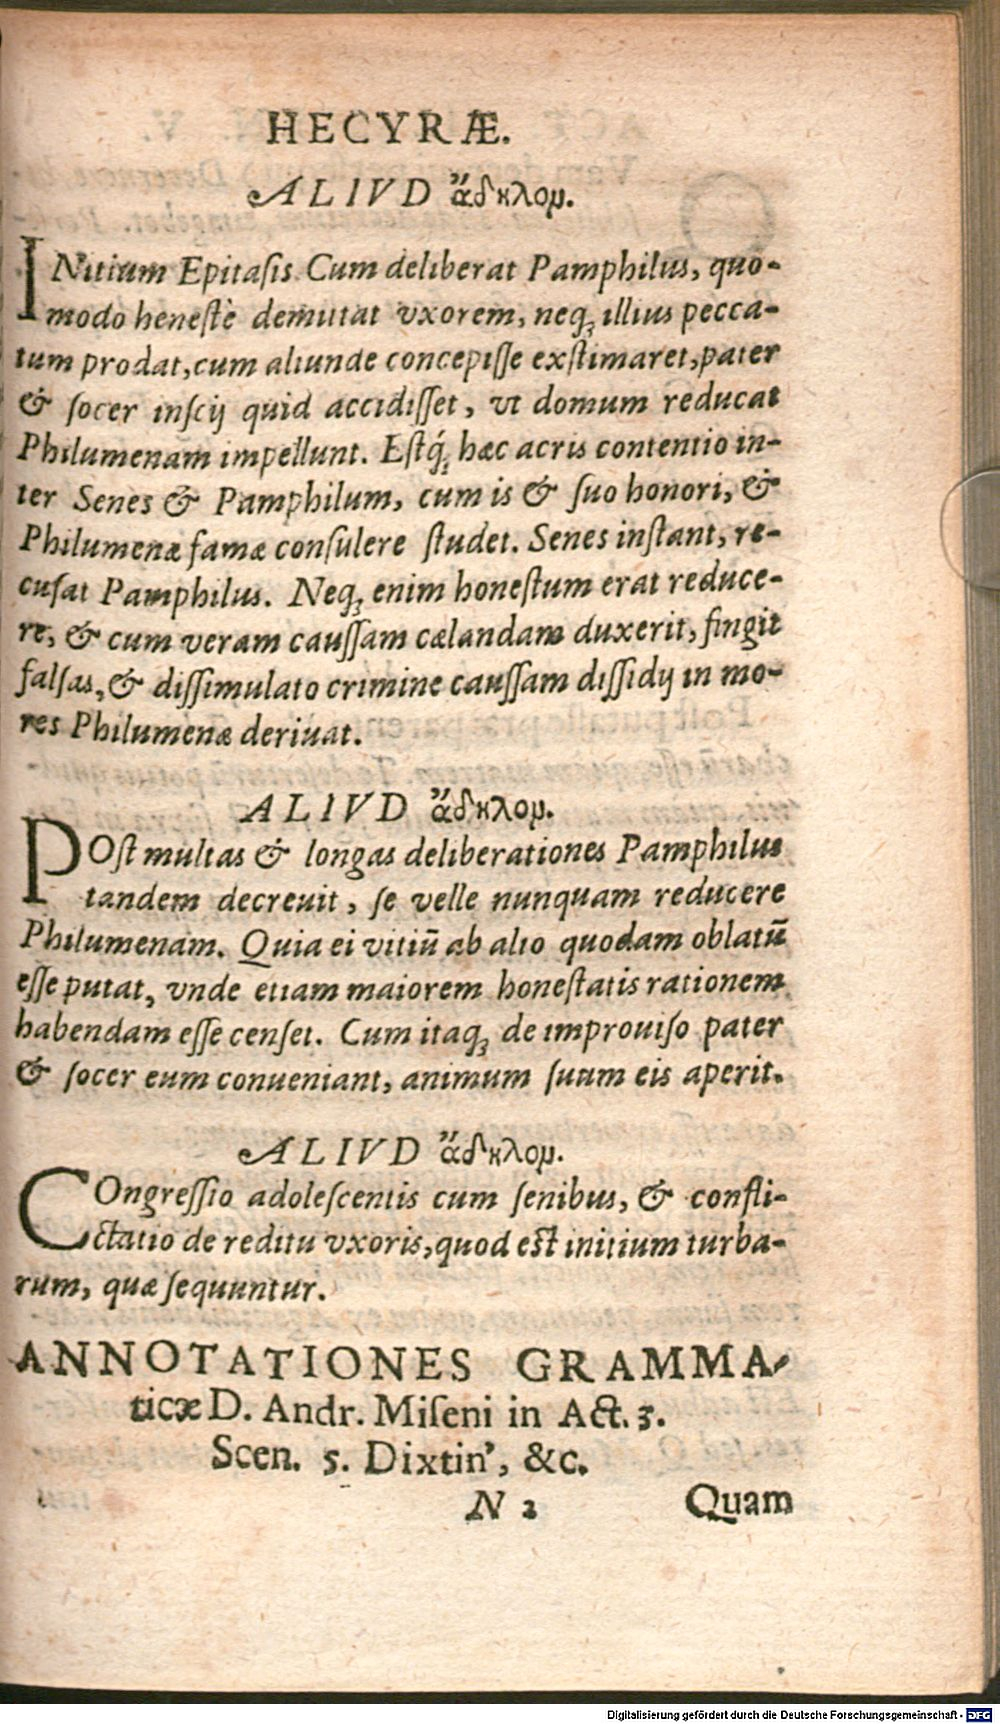 HECYRÆ.
ALIVD ἄδκλομ.
INitium Epitasis. Cum deliberat Pamphilus, quo-
modo henestè demittat vxorem, neq; illius pecca-
tum prodat, cum aliunde concepiſſe exſtimaret, pater
& ſocer inſcij quid accidiſſet, vt domum reducat
Philumenam impellunt. Eſtq́; hæc acris contentio in-
ter Senes & Pamphilum, cum is & ſuo honori, &
Philumenæ famæ conſulere ſtudet. Senes inſtant, re-
cuſat Pamphilus. Neq; enim honeſtum erat reduce-
re, & cum veram cauſſam cælandam duxerit, fingit
falſas, & diſſimulato crimine cauſſam diſſidij in mo-
res Philumenæ deriuat.
ALIVD ἄδκλομ.
POſt multas & longas deliberationes Pamphilus
tandem decreuit, ſe velle nunquam reducere
Philumenam. Quia ei vitiū ab alio quodam oblatū
eſſe putat, vnde etiam maiorem honeſtatis rationem
habendam eſſe cenſet. Cum itaq; de improuiſo pater
& ſocer eum conueniant, animum ſuum eis aperit.
ALIVD ἄδκλομ.
COngreſſio adoleſcentis cum ſenibus, & confli-
ctatio de reditu vxoris, quod eſt initium turba-
rum, quæ ſequuntur.
ANNOTATIONES GRAMMA-
ticæ D. Andr. Miſeni in Act. 3.
Scen. 5. Dixtin', &c.
N 2 Quam
Digitalisierung gefördert durch die Deutsche Forschungsgemeinschaft - DFG